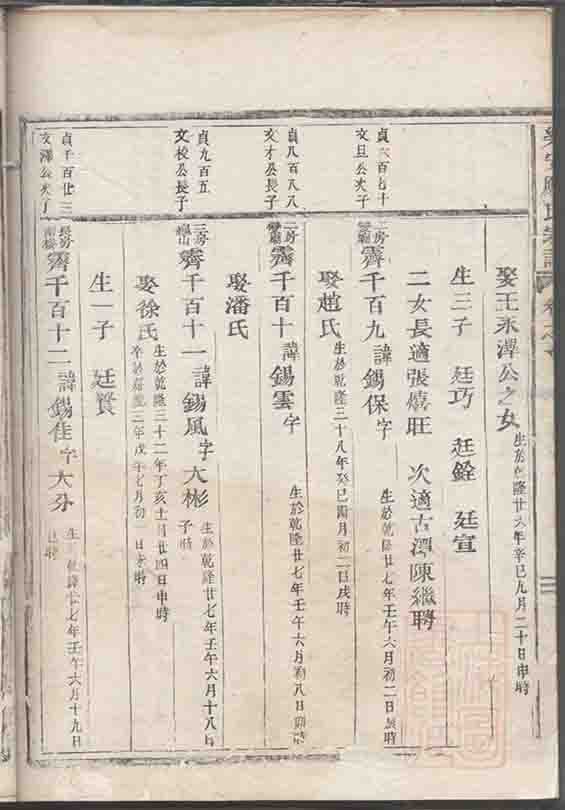 娶王永潭公之女 生於乾隆廿六年辛巳九月二十日申時
生三子 廷巧 廷銓 廷宣
二女長適張熺旺 次適古潭陳繼聘
貞六百七十
文旦公次子
二房 霽千百九 諱錫保 字 生於乾隆廿七年壬午六月初二日辰時
娶趙氏 生於乾隆三十八年癸巳閏月初二日戌時
貞八百八八
文才公長子
二房 霽千百十 諱錫雲 字 生於乾隆廿七年壬午六月初八日卯時
娶潘氏
貞九百五
文校公長子
三房 霽千百十一 諱錫風 字大彬 生於乾隆廿七年壬午六月十八日
子時
娶徐氏 生於乾隆三十二年丁亥十一月廿四日申時
卒於嘉慶三年戊午七月初一日未時
生一子 廷賢
貞千百廿三
文澤公次子
長房 霽千百十二 諱錫佳 字大分 生於乾隆廿七年壬午六月十九日
巳時